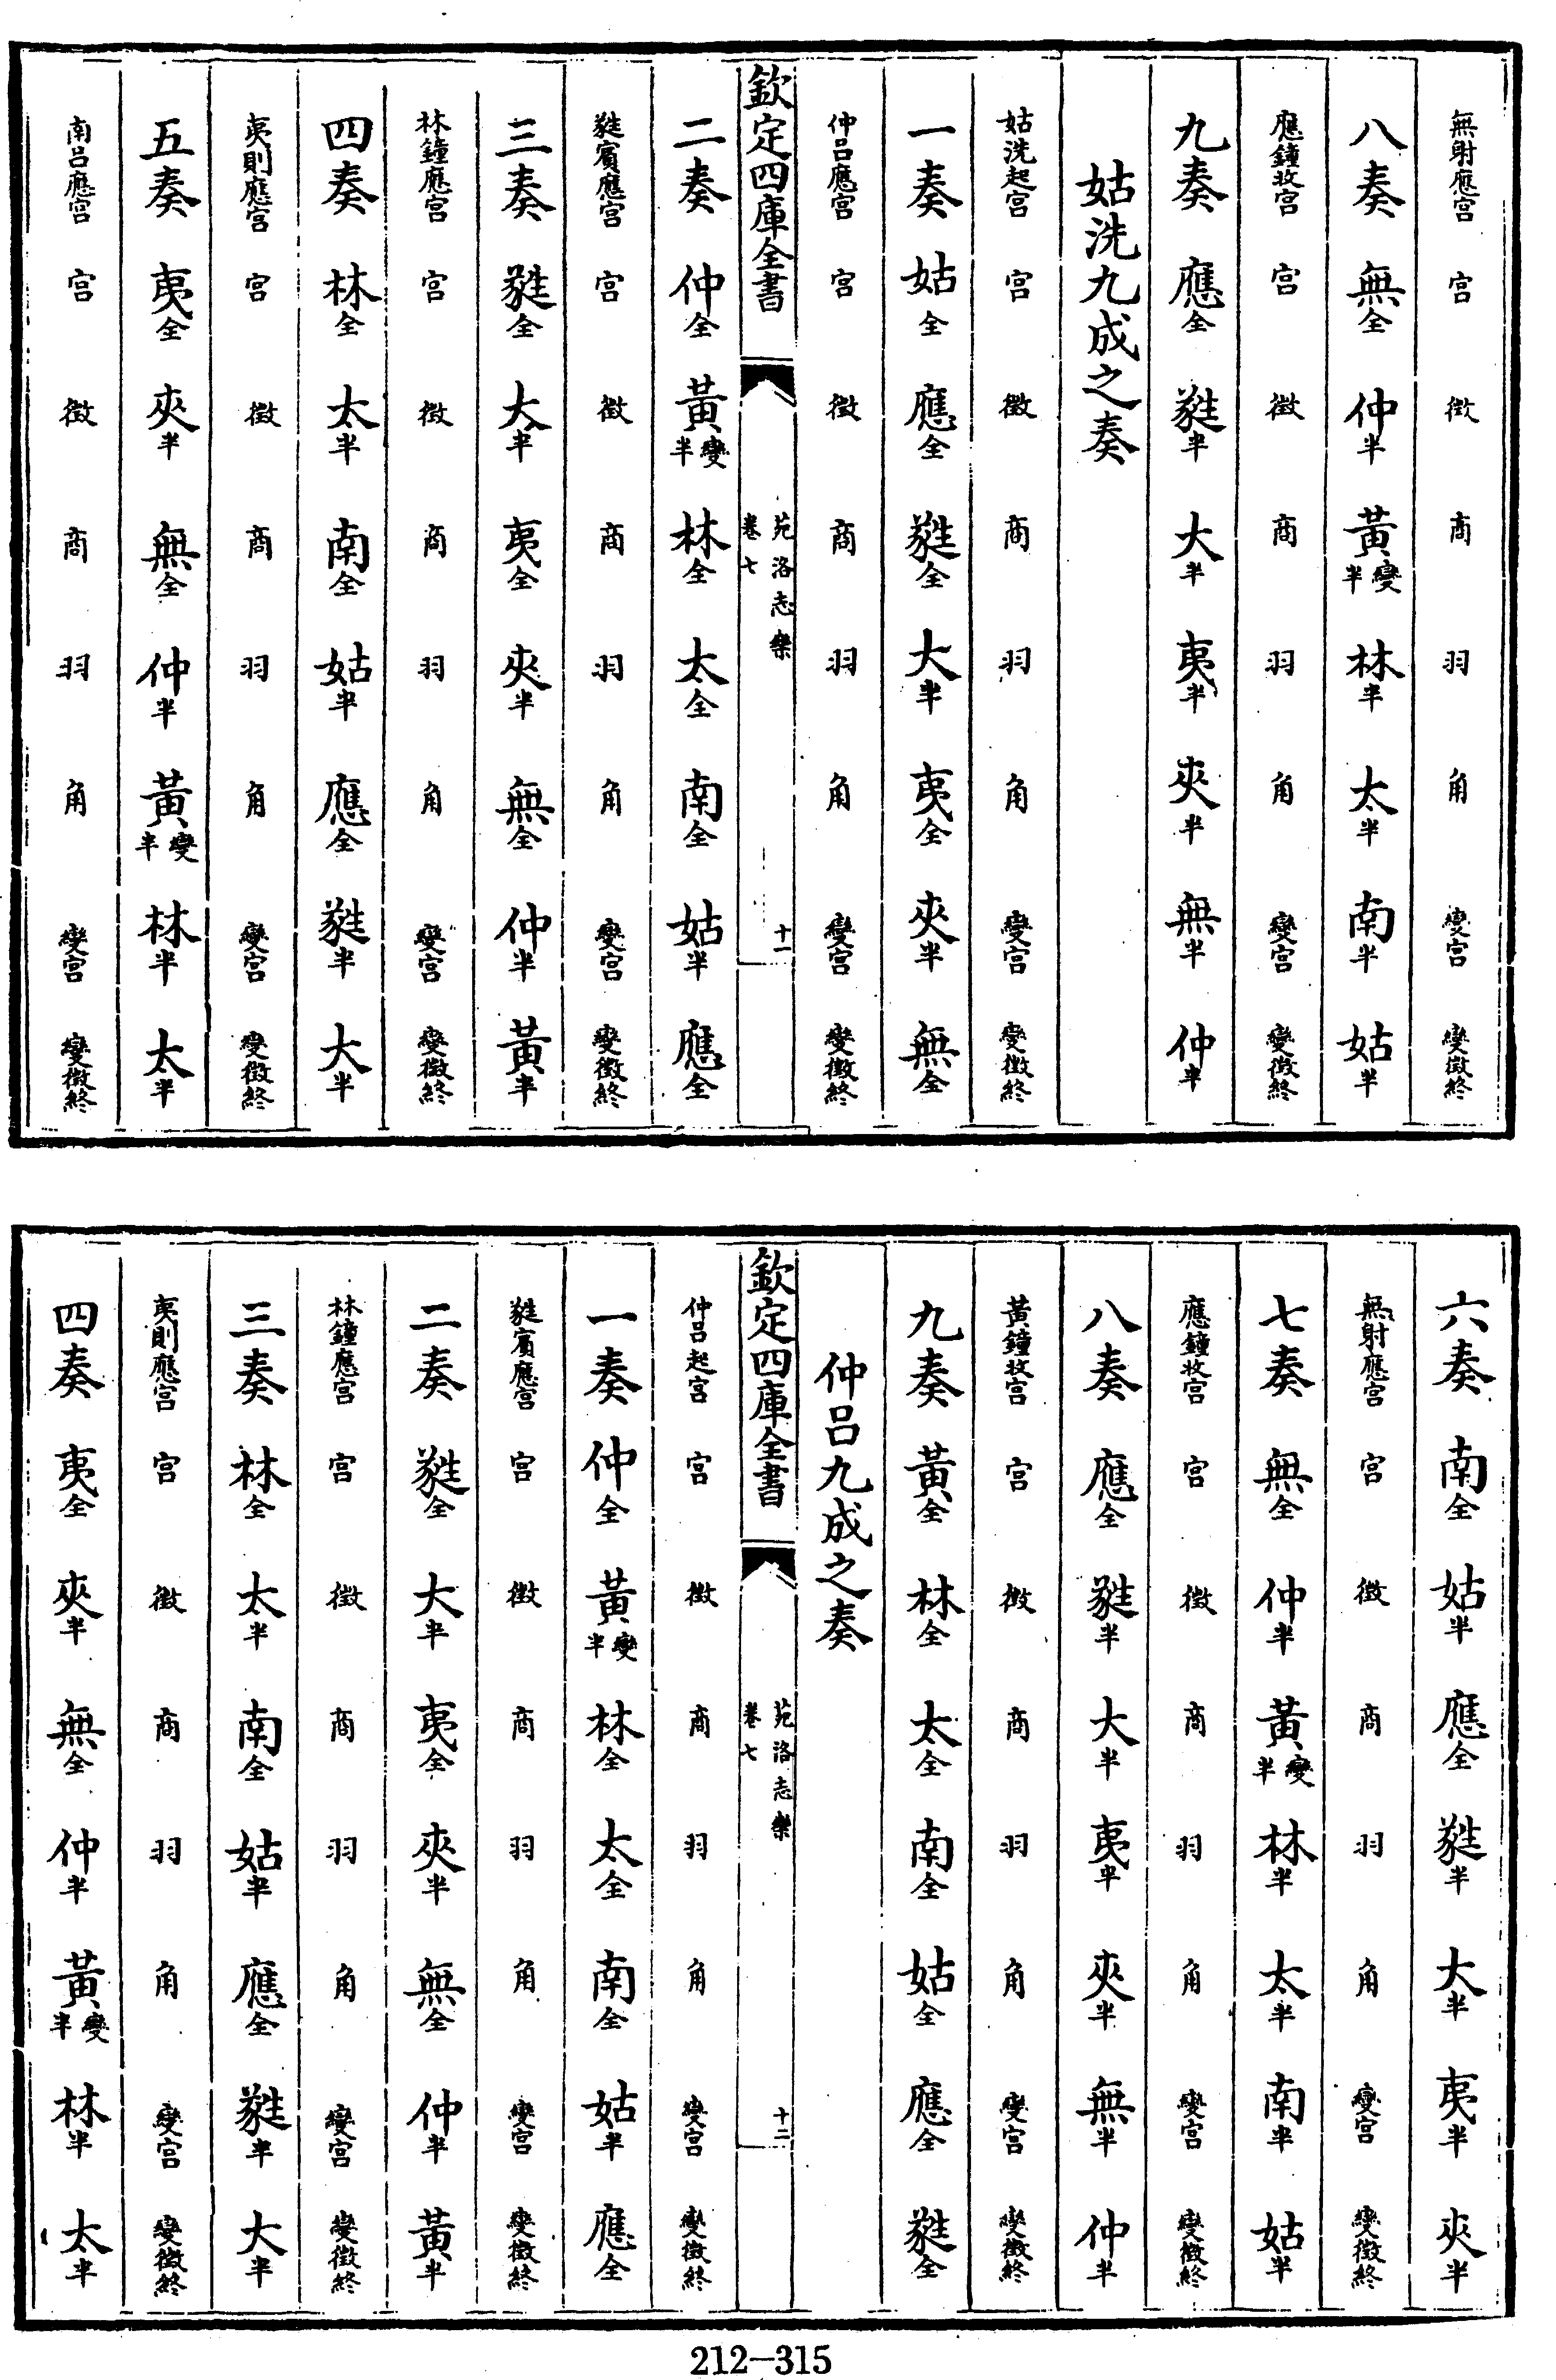 無射應宮 宮 徵 商 羽 角 變宮 變徵終
八奏 無全 仲半 黃變半 林半 太半 南半 姑半
應鐘收宮 宮 徵 商 羽 角 變宮 變徵終
九奏 應全 蕤半 大半 夷半 夾半 無半 仲半
姑洗九成之奏
姑洗起宮 宮 徵 商 羽 角 變宮 變徵終
一奏 姑全 應全 蕤全 大半 夷全 夾半 無全
仲呂應宮 宮 徵 商 羽 角 變宮 變徵終
欽定四庫全書 苑洛志樂 卷七 十一
二奏 仲全 黃變半 林全 太全 南全 姑半 應全
蕤賓應宮 宮 徵 商 羽 角 變宮 變徵終
三奏 蕤全 大半 夷全 夾半 無全 仲半 黃半
林鐘應宮 宮 徵 商 羽 角 變宮 變徵終
四奏 林全 太半 南全 姑半 應全 蕤半 大半
夷則應宮 宮 徵 商 羽 角 變宮 變徵終
五奏 夷全 夾半 無全 仲半 黃變半 林半 太半
南呂應宮 宮 徵 商 羽 角 變宮 變徵終
六奏 南全 姑半 應全 蕤半 大半 夷半 夾半
無射應宮 宮 徵 商 羽 角 變宮 變徵終
七奏 無全 仲半 黃變半 林半 太半 南半 姑半
應鐘收宮 宮 徵 商 羽 角 變宮 變徵終
八奏 應全 蕤半 大半 夷半 夾半 無半 仲半
黃鐘收宮 宮 徵 商 羽 角 變宮 變徵終
九奏 黃全 林全 太全 南全 姑全 應全 蕤全
仲呂九成之奏
欽定四庫全書 苑洛志樂 卷七 十二
仲呂起宮 宮 徵 商 羽 角 變宮 變徵終
一奏 仲全 黃變半 林全 太全 南全 姑半 應全
蕤賓應宮 宮 徵 商 羽 角 變宮 變徵終
二奏 蕤全 大半 夷全 夾半 無全 仲半 黃半
林鐘應宮 宮 徵 商 羽 角 變宮 變徵終
三奏 林全 太半 南全 姑半 應全 蕤半 大半
夷則應宮 宮 徵 商 羽 角 變宮 變徵終
四奏 夷全 夾半 無全 仲半 黃變半 林半 太半
212-315